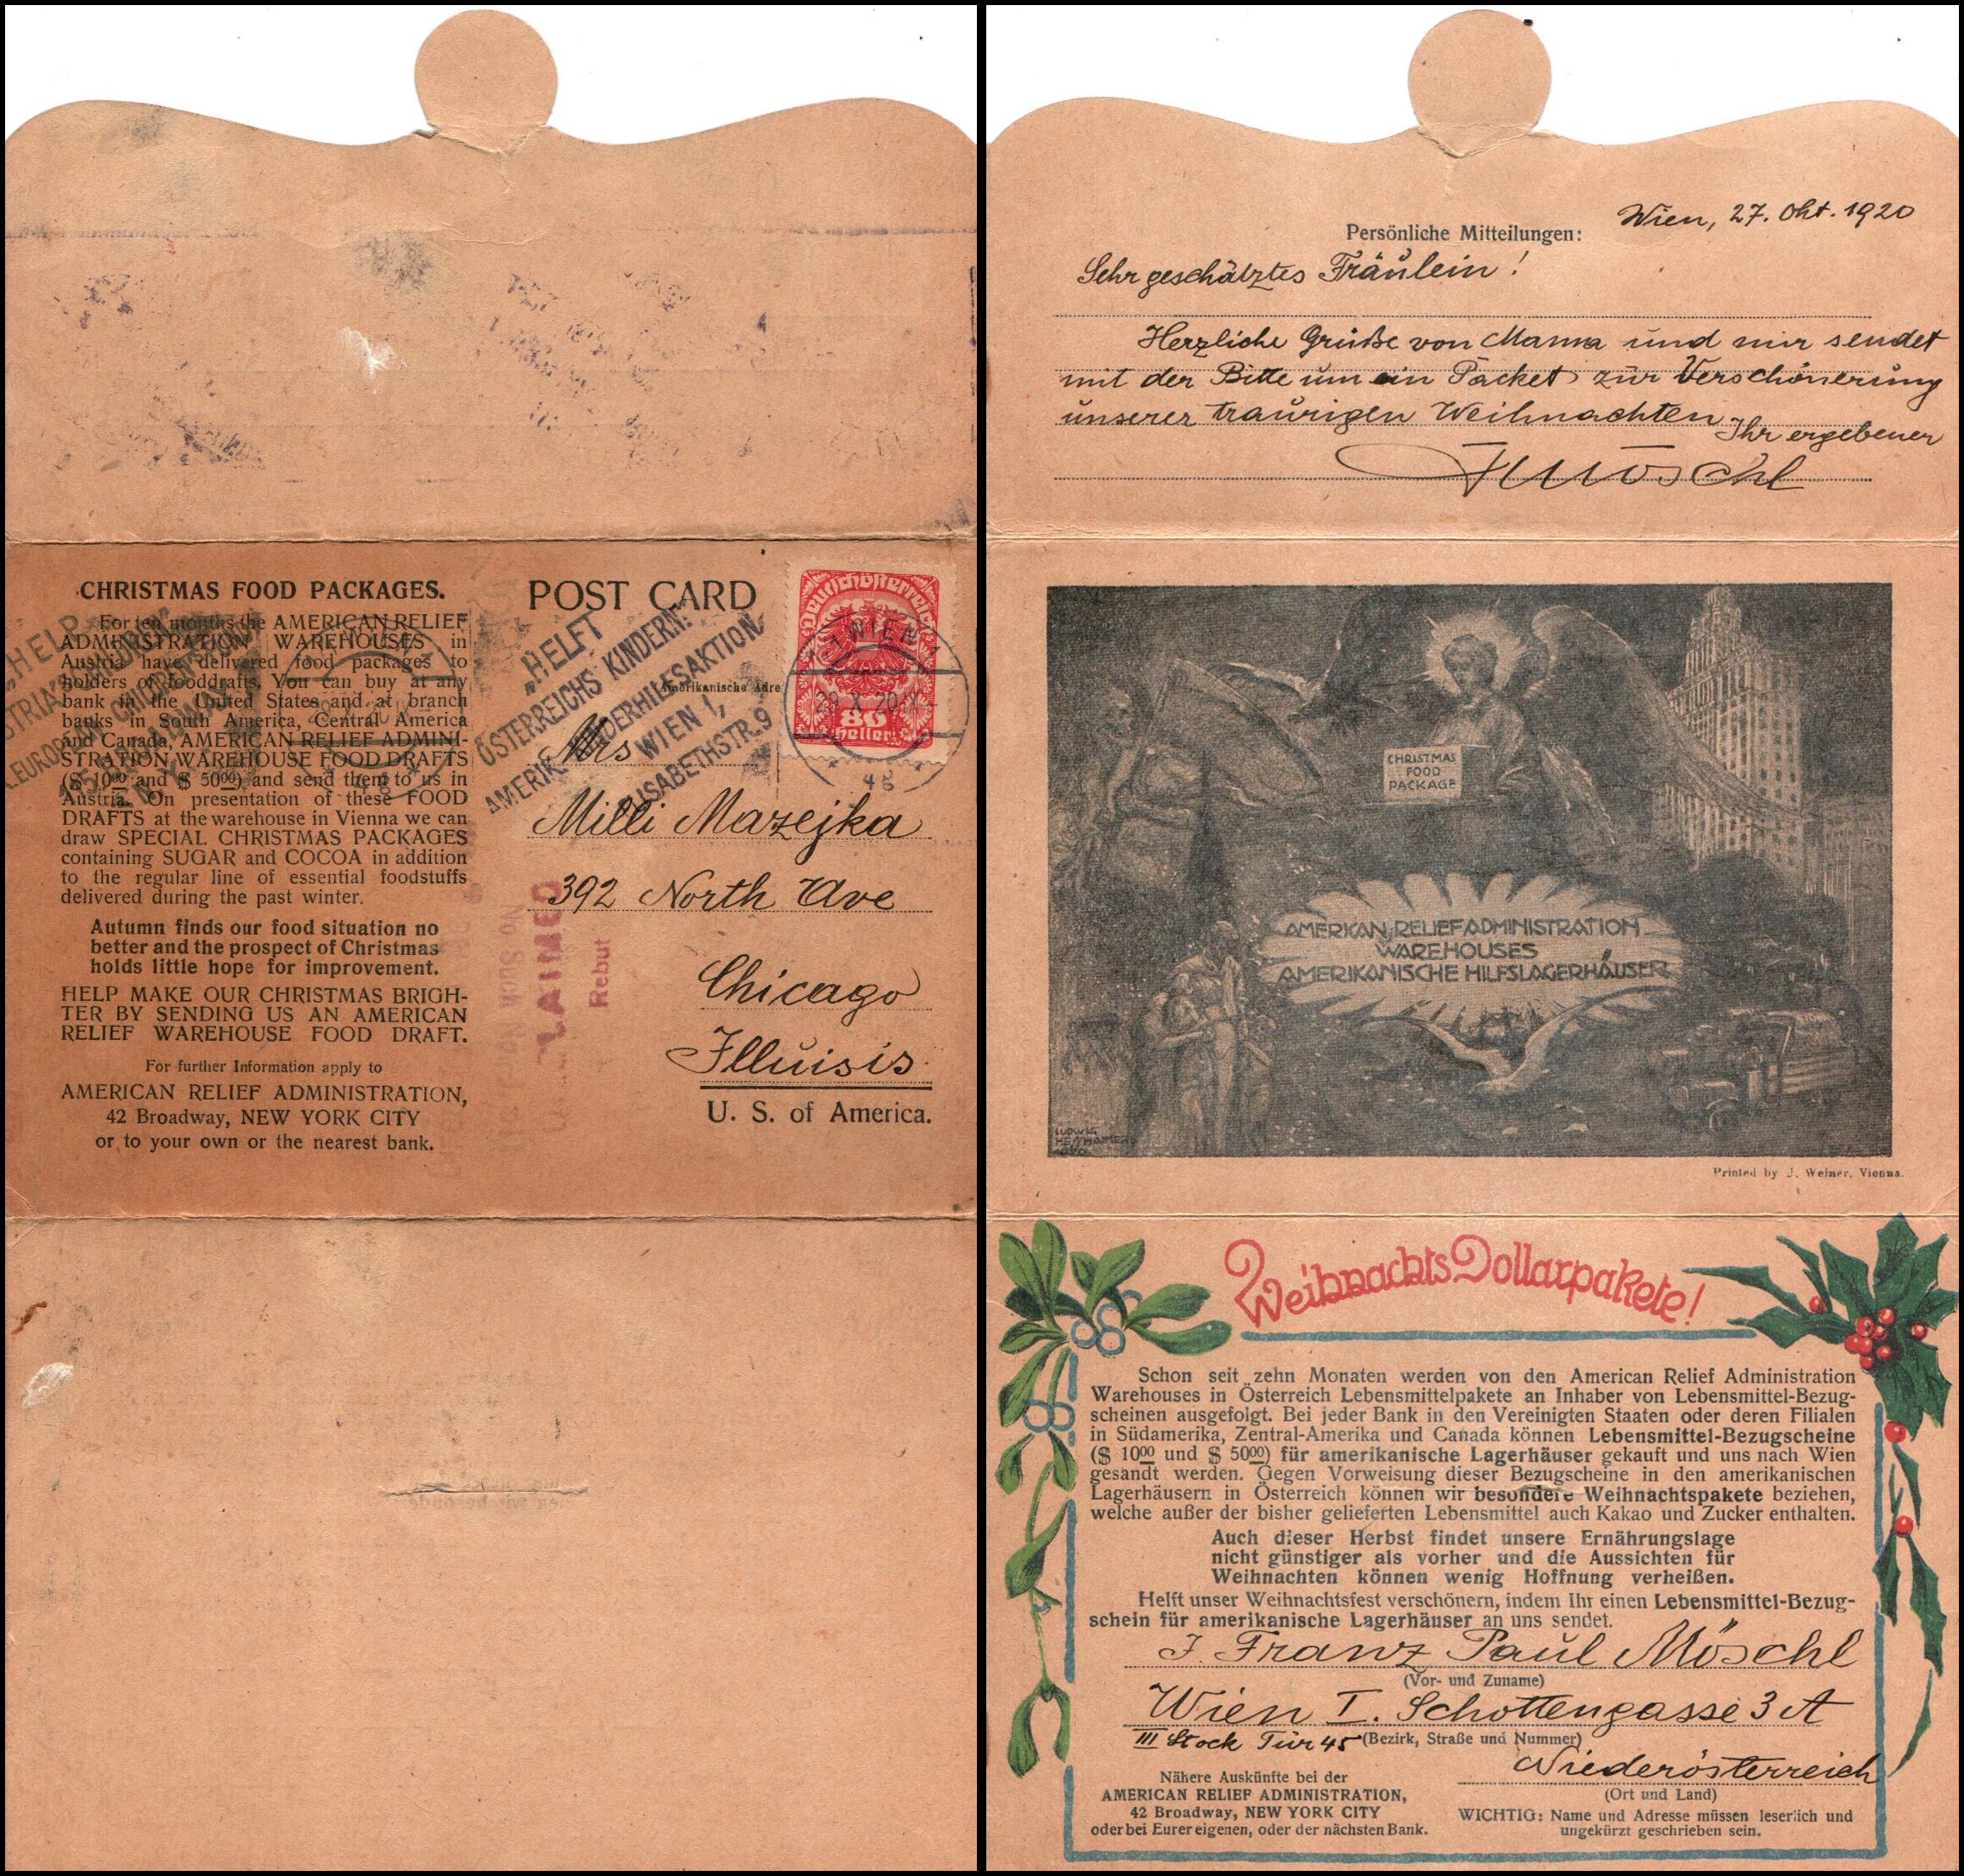 CHRISTMAS FOOD PACKAGES.
For ten months the AMERICAN RELIEF
ADMINISTRATION WAREHOUSES in
Austria have delivered food packages to
holders of fooddrafts. You can buy at any
bank in the United States and at branch
banks in South America, Central America
and Canada, AMERICAN RELIEF ADMINI-
STRATION WAREHOUSE FOOD DRAFTS
($ 10⁰⁰ and $ 50⁰⁰) and send them to us in
Austria. On presentation of these FOOD
DRAFTS at the warehouse in Vienna we can
draw SPECIAL CHRISTMAS PACKAGES
containing SUGAR and COCOA in addition
to the regular line of essential foodstuffs
delivered during the past winter.
Autumn finds our food situation no
better and the prospect of Christmas
holds little hope for improvement.
HELP MAKE OUR CHRISTMAS BRIGH-
TER BY SENDING US AN AMERICAN
RELIEF WAREHOUSE FOOD DRAFT.
For further Information apply to
AMERICAN RELIEF ADMINISTRATION,
42 Broadway, NEW YORK CITY
or to your own or the nearest bank.
POST CARD
"HELFT
ÖSTERREICHS KINDERN!"
AMERIK. KINDERHILFSAKTION
WIEN 1,
ELISABETHSTR. 9
Deutschösterreich
80
heller
WIEN
Amerikanische Adre
Mrs
Milli Mazejka
392 North Ave
Chicago
Illuisis
U. S. of America.
No Such
LAIMED
Rebut
Wien, 27. Okt. 1920
Persönliche Mitteilungen:
Sehr geschätztes Fräulein!
Herzliche Grüße von Mama und mir sendet
mit der Bitte um ein Packet zur Verschönerung
unserer traurigen Weihnachten
Ihr ergebener
Möschl
CHRISTMAS
FOOD
PACKAGE
AMERIKAN RELIEF ADMINISTRATION
WAREHOUSES
AMERIKANISCHE HILFSLAGERHÄUSER
LUDWIG
HESSHAIMER
1920
Printed by J. Weiner, Vienna.
Weihnachts Dollarpakete!
Schon seit zehn Monaten werden von den American Relief Administration
Warehouses in Österreich Lebensmittelpakete an Inhaber von Lebensmittel-Bezug-
scheinen ausgefolgt. Bei jeder Bank in den Vereinigten Staaten oder deren Filialen
in Südamerika, Zentral-Amerika und Canada können Lebensmittel-Bezugscheine
($ 10⁰⁰ und $ 50⁰⁰) für amerikanische Lagerhäuser gekauft und uns nach Wien
gesandt werden. Gegen Vorweisung dieser Bezugscheine in den amerikanischen
Lagerhäusern in Österreich können wir besondere Weihnachtspakete beziehen,
welche außer der bisher gelieferten Lebensmittel auch Kakao und Zucker enthalten.
Auch dieser Herbst findet unsere Ernährungslage
nicht günstiger als vorher und die Aussichten für
Weihnachten können wenig Hoffnung verheißen.
Helft unser Weihnachtsfest verschönern, indem Ihr einen Lebensmittel-Bezug-
schein für amerikanische Lagerhäuser an uns sendet.
J. Franz Paul Möschl
(Vor- und Zuname)
Wien I. Schottengasse 3 A
III Stock Tür 45 (Bezirk, Straße und Nummer)
Niederösterreich
(Ort und Land)
Nähere Auskünfte bei der
AMERICAN RELIEF ADMINISTRATION,
42 Broadway, NEW YORK CITY
oder bei Eurer eigenen, oder der nächsten Bank.
WICHTIG: Name und Adresse müssen leserlich und
ungekürzt geschrieben sein.